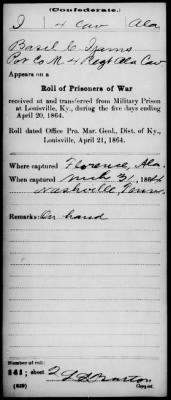 (Confederate.)
I 4 Cav Ala
Basil C Ijams
Pvt Co. M. 4 Regt Ala Cav
Appears on a
Roll of Prisoners of War
received at and transferred from Military Prison
at Louisville, Ky., during the five days ending
April 20, 1864.
Roll dated Office Pro. Mar. Genl., Dist. of Ky.,
Louisville, April 21, 1864.
Where captured Florence, Ala.
When captured Mch 31, 1864
Nashville, Tenn.
Remarks: On hand
Number of roll:
841; sheet 2
Barton
(639) Copyist.